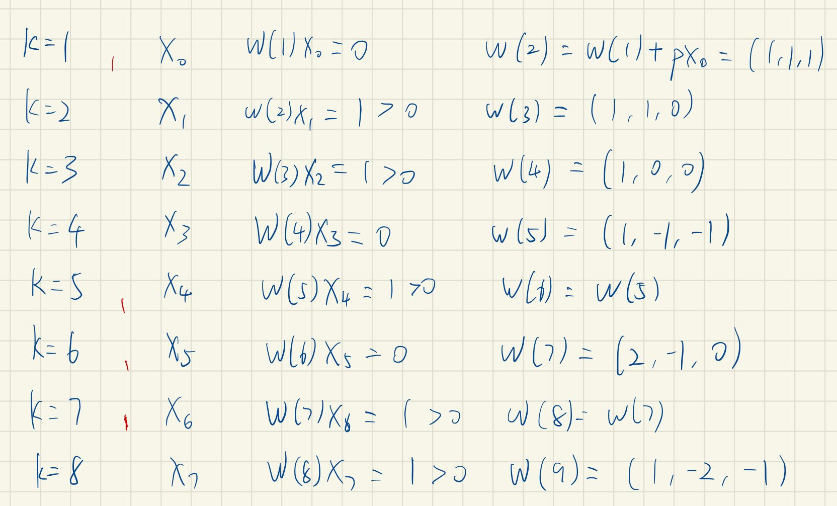 k=1 X₀ W(1)X₀=0 W(2)=W(1)+pX₀=(1,1,1)
k=2 X₁ W(2)X₁=1>0 W(3)=(1,1,0)
k=3 X₂ W(3)X₂=1>0 W(4)=(1,0,0)
k=4 X₃ W(4)X₃=0 W(5)=(1,-1,-1)
k=5 X₄ W(5)X₄=1>0 W(6)=W(5)
k=6 X₅ W(6)X₅=0 W(7)=(2,-1,0)
k=7 X₆ W(7)X₆=1>0 W(8)=W(7)
k=8 X₇ W(8)X₇=1>0 W(9)=(1,-2,-1)